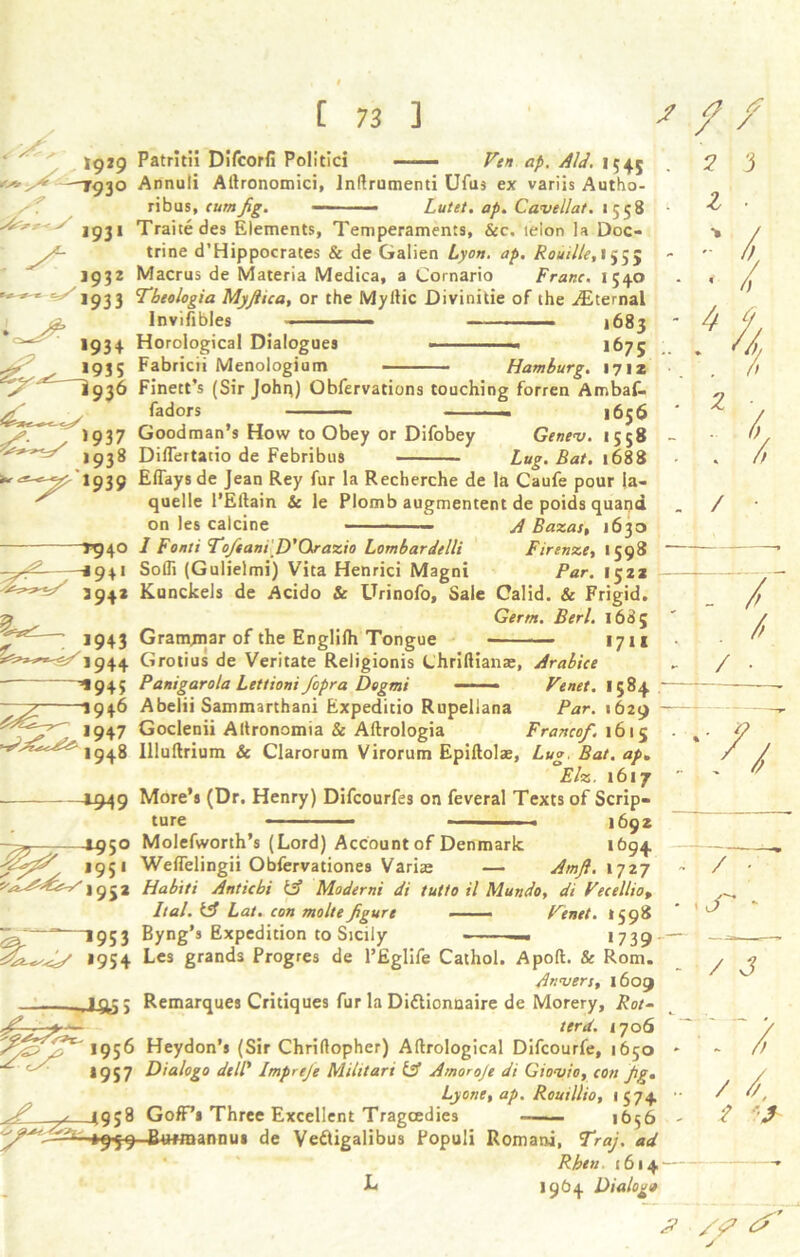 [ 73 ]
1929 Patritii Difcorfi Politici —— Ven ap. Ald. 1545 . 2 3
1930 Annuli Aftronomici, Inftrumenti Ufus ex variis Autho-
ribus, cum fig. —— Lutet. ap. Cavellat. 1558
1931 Traité des Elements, Temperaments, &c. felon la Doc-
trine d'Hippocrates & de Galien Lyon. ap. Rouille, 1555
1932 Macrus de Materia Medica, a Cornario Franc. 1540
1933 Theologia Myftica, or the Myftic Divinitie of the Æternal
Invifibles —— —— 1683
1934 Horological Dialogues —— 1675
1935 Fabricii Menologium —— Hamburg. 1712
1936 Finett's (Sir John) Obfervations touching forren Ambaf-
fadors —— —— 1656
1937 Goodman's How to Obey or Difobey Genev. 1558
1938 Differtatio de Febribus —— Lug. Bat. 1688
1939 Effays de Jean Rey fur la Recherche de la Caufe pour la-
quelle l'Eftain & le Plomb augmentent de poids quand
on les calcine —— A Bazas, 1630
1940 I Fonti Tofcani D'Orazio Lombardelli Firenze, 1598
1941 Soffi (Gulielmi) Vita Henrici Magni Par. 1522
1942 Kunckels de Acido & Urinofo, Sale Calid. & Frigid.
Germ. Berl. 1685
1943 Grammar of the Englifh Tongue —— 1711
1944 Grotius de Veritate Religionis Chriftianæ, Arabice
1945 Panigarola Lettioni fopra Dogmi —— Venet. 1584
1946 Abelii Sammarthani Expeditio Rupellana Par. 1629
1947 Goclenii Aftronomia & Aftrologia Francof. 1615
1948 Illuftrium & Clarorum Virorum Epiftolæ, Lug. Bat. ap.
Elz. 1617
1949 More's (Dr. Henry) Difcourfes on feveral Texts of Scrip-
ture —— —— 1692
1950 Molefworth's (Lord) Account of Denmark 1694
1951 Weffelingii Obfervationes Variæ — Amft. 1727
1952 Habiti Antichi & Moderni di tutto il Mundo, di Vecellio,
Ital. & Lat. con molte figure —— Venet. 1598
1953 Byng's Expedition to Sicily —— 1739
1954 Les grands Progres de l'Eglife Cathol. Apoft. & Rom.
Anvers, 1609
1955 Remarques Critiques fur la Dictionnaire de Morery, Rot-
terd. 1706
1956 Heydon's (Sir Chriftopher) Aftrological Difcourfe, 1650
1957 Dialogo dell' Imprefe Militari & Amorofe di Giovio, con fig.
Lyone, ap. Rouillio, 1574
1958 Goff's Three Excellent Tragœdies —— 1656
1959 Burmannus de Vectigalibus Populi Romani, Traj. ad
Rhen. 1614
L 1964 Dialogo